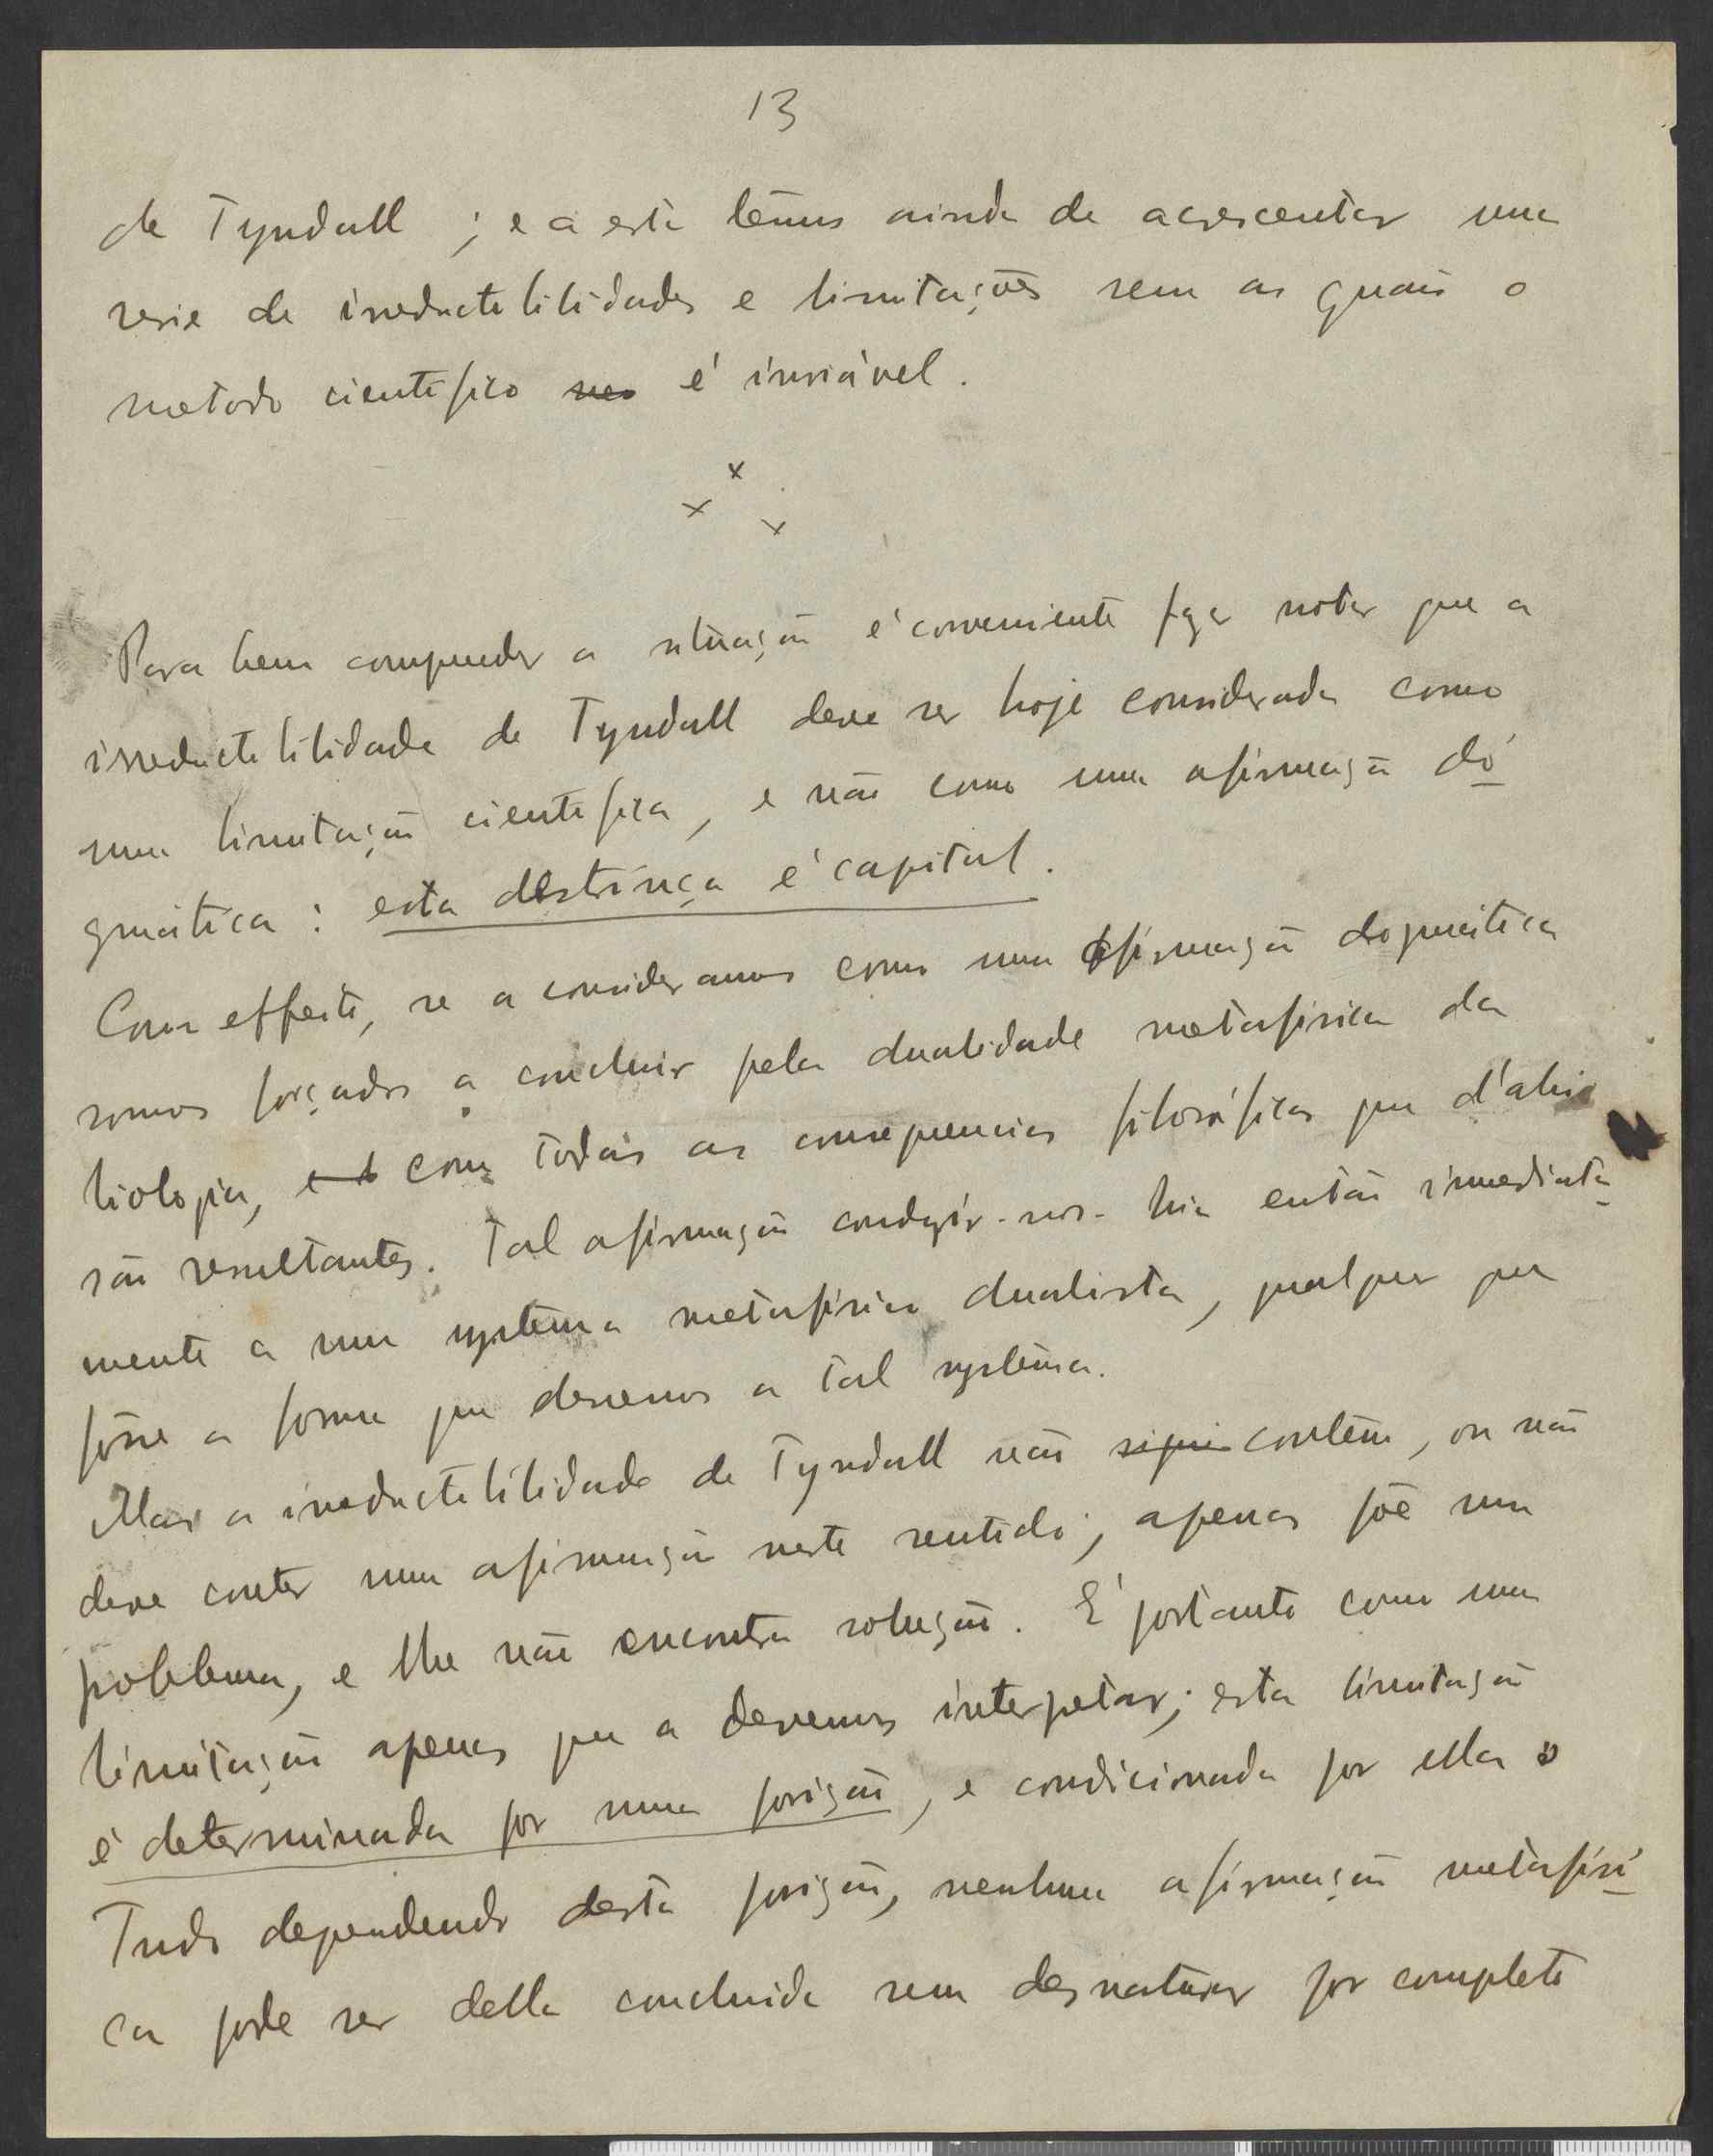 13
de Tyndall ; e a esta temos ainda de acrescentar uma
serie de irreductibilidades e limitações sem as quais o
metodo cientifico é inviável.
x
x x
Para bem comprender a situação é conveniente fazer notar que a
irreductibilidade de Tyndall deve ser hoje considerada como
uma limitação cientifica, e não como uma afirmação dó
gmática : esta destrinça é capital.
Com effeito, se a consideramos como uma afirmação dogmática
somos forçados a concluir pela dualidade metafisica da
biologia, com todas as consequencias filosóficas que d'ahi
são resultantes. Tal afirmação conduzir-nos-hia então immediata-
mente a um systema metafisico dualista, qualquer que
fôsse a forma que dessemos a tal systema.
Mas a irreductibilidade de Tyndall não contem, ou não
deve conter uma afirmação neste sentido; apenas põe um
problema, e lhe não encontra solução. É portanto como uma
limitação apenas que a devemos interpetar; esta limitação
é determinada por uma posição, e condicionada por ella
Tudo dependendo desta posição, nenhuma afirmação metafisi-
ca pode ser della concluida sem desnaturar por completo